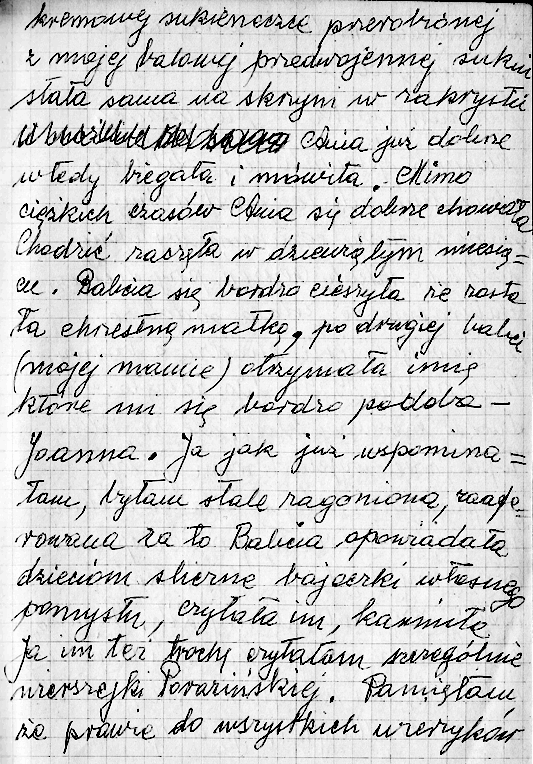 kremowej sukieneczce przerobionej
z mojej balowej przedwojennej sukni
stała sama na skrzyni w zakrystii
Ania już dobrze
wtedy biegała i mówiła. Mimo
ciężkich czasów Ania się dobrze chowała
Chodzić zaczęła w dziewiątym miesią=
cu. Babcia się bardzo cieszyła że zosta
ła chrzestną matką, po drugiej babci
(mojej mamie) otrzymała imię
które mi się bardzo podoba –
Joanna. Ja jak już wspomina=
łam, byłam stale zagoniona, zaafe=
rowana za to Babcia opowiadała
dzieciom śliczne bajeczki własnego
pomysłu, czytała im, karmiła
Ja im też trochę czytałam szczególnie
wierszyki Porazińskiej. Pamiętam
że prawie do wszystkich wierzyków